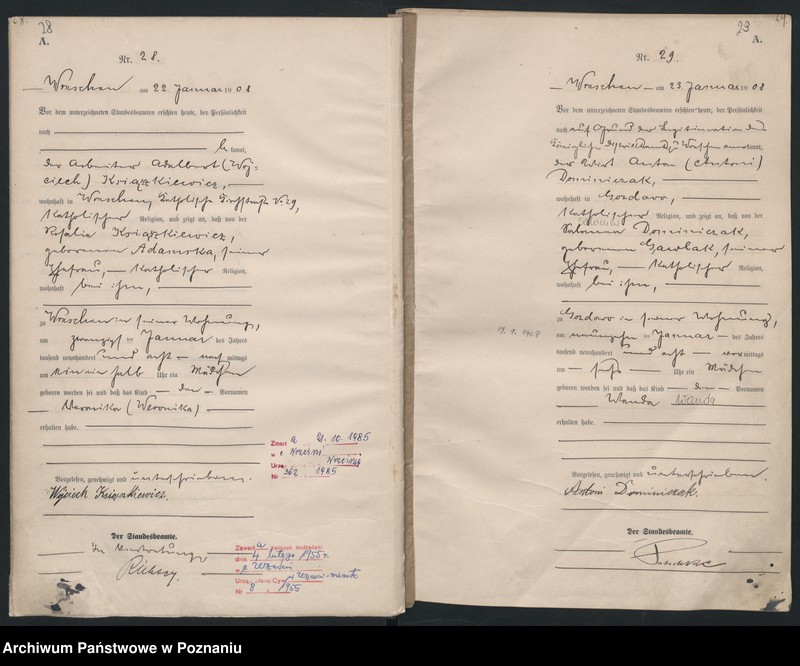 28
A.
Nr. 28.
Wreschen am 22 Januar 1908
Vor dem unterzeichneten Standesbeamten erschien heute, der Persönlichkeit
nach
kannt,
der Arbeiter Adalbert (Woj-
ciech) Książkiewicz,
wohnhaft in Wreschen, 29,
katholischer Religion, und zeigt an, daß von der
Rosalie Książkiewicz,
geborenen Adamska, seiner
Ehefrau, katholischer Religion,
wohnhaft bei ihm,
zu Wreschen in seiner Wohnung,
am zwanzigsten Januar des Jahres
tausend neunhundert und acht nachmittags
um ein halb Uhr ein Mädchen
geboren worden sei und daß das Kind den Vornamen
Weronika (Weronika)
erhalten habe.
Vorgelesen, genehmigt und unterschrieben.
Wojciech Książkiewicz.
Der Standesbeamte.
In Vertretung
Zmarł a 21. 10. 1985
w
Urz.
Nr 362 1985
Zawarł a związek małżeński
dnia 4 lutego 1955 r.
w Wrześni
Urząd Stanu Cyw. w Wrześni-miasto
Nr 8 1955
29
A.
Nr. 29.
Wreschen am 23. Januar 1908
Vor dem unterzeichneten Standesbeamten erschien heute, der Persönlichkeit
nach auf Grund der Legitimation des
Königlichen Wreschen anerkannt,
der Anton (Antoni)
Dominiczak,
wohnhaft in Gozdowo,
katholischer Religion, und zeigt an, daß von der
Salomea Dominiczak,
geborenen Gawlak, seiner
Ehefrau, katholischer Religion,
wohnhaft bei ihm,
zu Gozdowo in seiner Wohnung,
am neunzehn ten Januar des Jahres
tausend neunhundert und acht vormittags
um sechs Uhr ein Mädchen
geboren worden sei und daß das Kind den Vornamen
Wanda Wanda
erhalten habe.
Vorgelesen, genehmigt und unterschrieben.
Antoni Dominiczak.
Der Standesbeamte.
19. 1. 1908
Archiwum Państwowe w Poznaniu